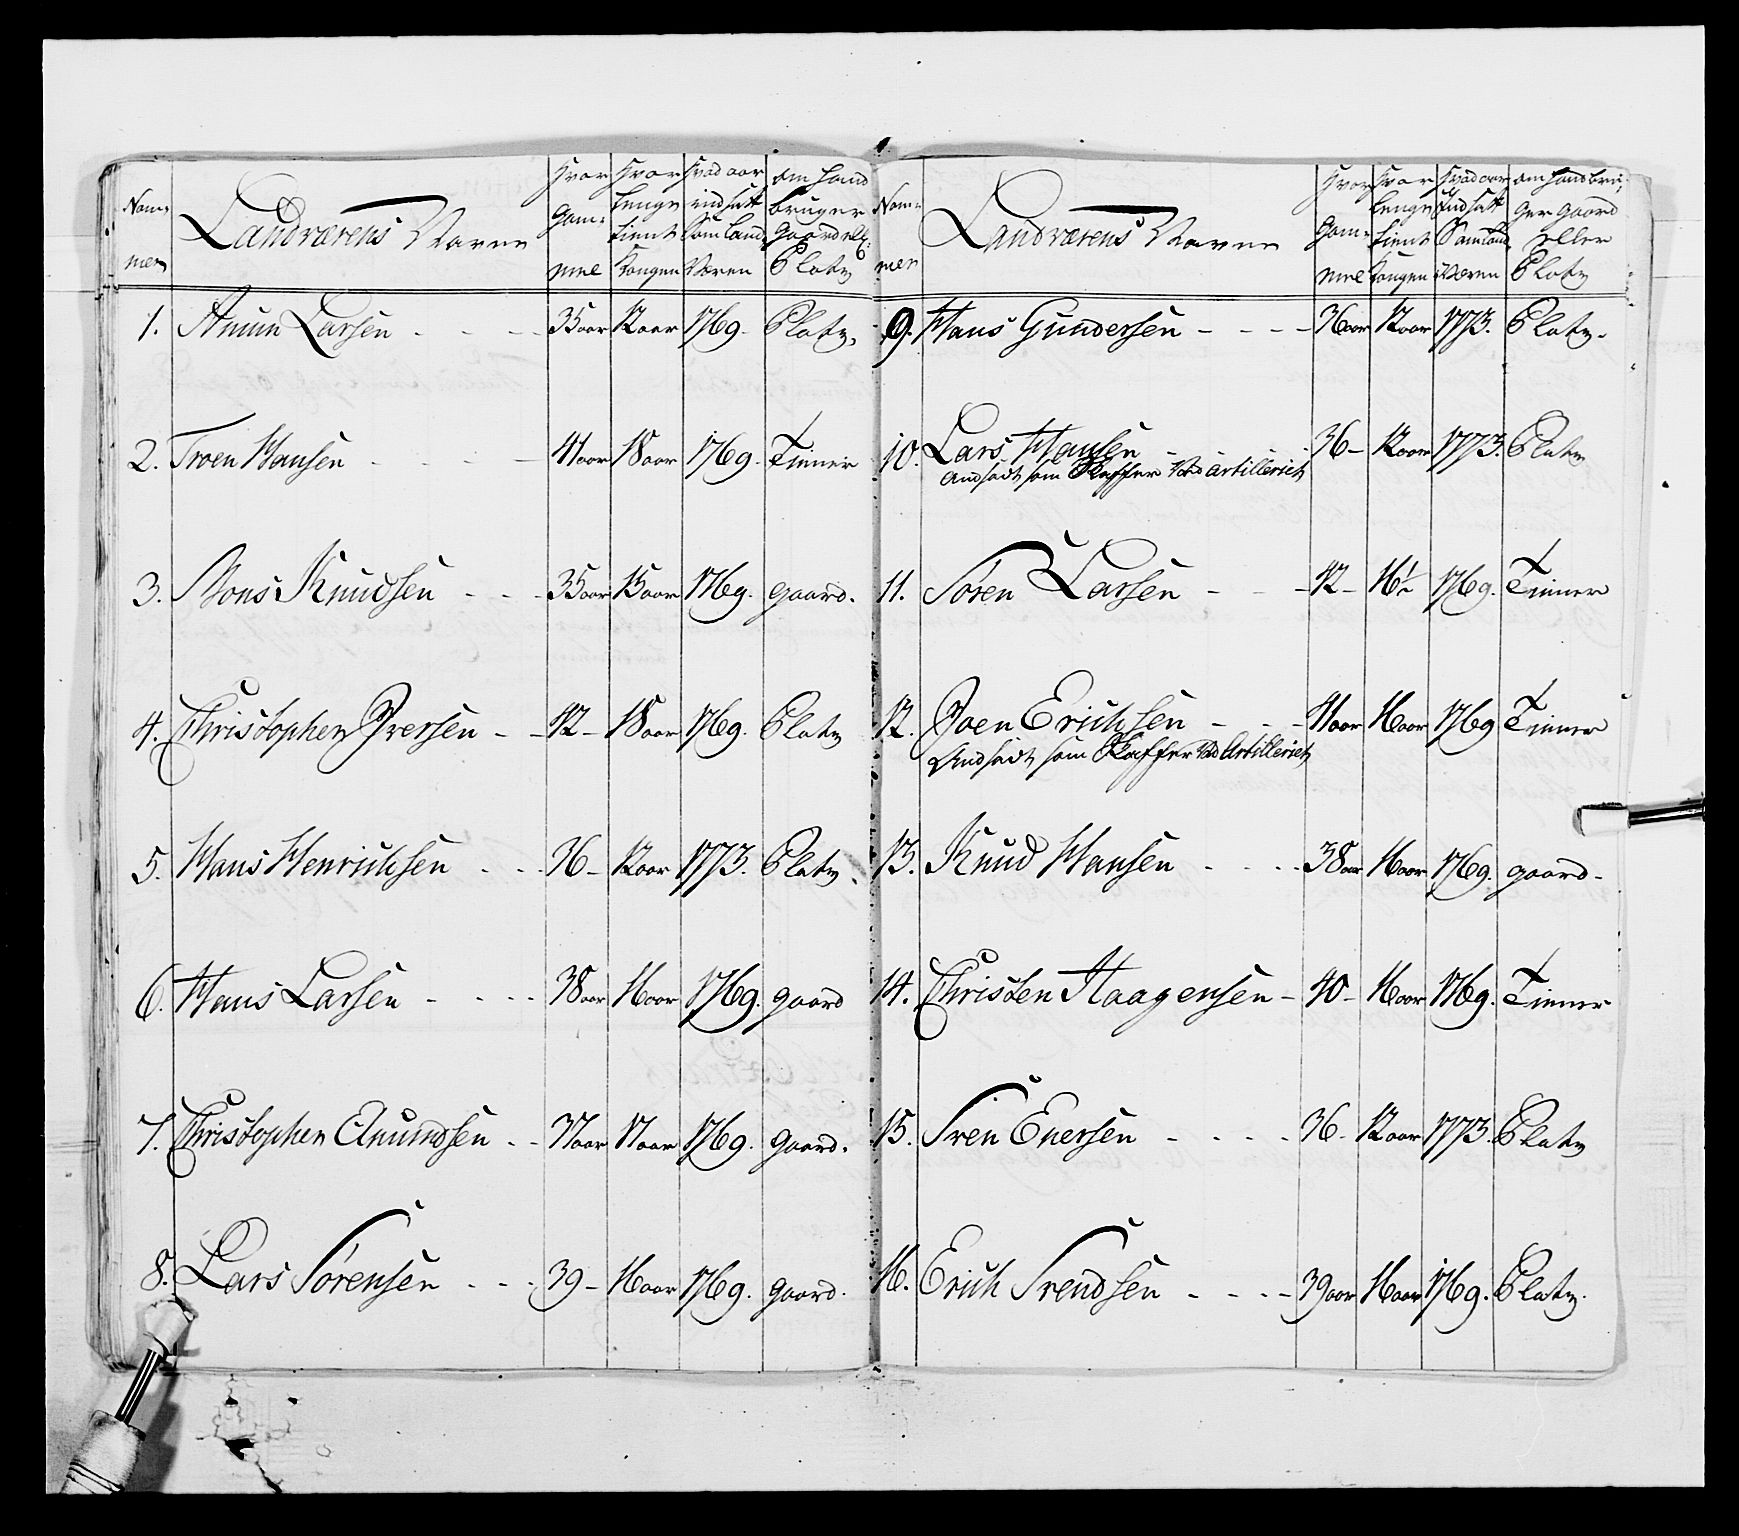 Nom-
mer
Landværens Navne
hvor
Gam-
mel
hvor
lenge
tient
Kongen
hvad aar
indsatt
Som Land
Væren
om hand
bruger
Gaard elr
Platz
1. Amun Larsen - - - - 35 aar 12 aar 1769. Platz.
2. Troen Hansen - - - - 41 aar 18 aar 1769. Tinner
3. Mons Knudsen - - - 35 aar 15 aar 1769. gaard.
4. Christopher Iversen - - 42 - 18 aar 1769. Platz
5. Hans Henrichsen - - - 36 - 12 aar 1773. Platz.
6. Hans Larsen - - - - 38 aar 16 aar 1769. gaard
7. Christopher Amundsen - - 37 aar 17 aar 1769. gaard.
8. Lars Sørensen - - - 39 - 16 aar 1769. gaard.
Nom-
mer
Landværens Navne
hvor
Gam-
mel
hvor
lenge
tient
Kongen
hvad aar
Indsatt
Som Land
Væren
om hand bru-
ger gaard
eller
Platz
9. Hans Gundersen - - - - 36 aar 12 aar 1773. Platz.
10. Lars Hansen - - - - 36 - 12 aar 1773. Platz
Andsadt som Kaffer Ved Artilleriet
11. Søren Larsen - - - 42 - 16 1/2 1769. Tinner
12. Joen Erichsen - - - 41 aar 16 aar 1769 Tinner
Andsadt som Kaffer Ved Artilleriet
13. Knud Hansen - - - - 38 aar 16 aar 1769. gaard -
14. Christen Haagensen - 40 - 16 aar 1769. Tinner
15. Sven Enersen - - - - 36 - 12 aar 1773. Platz
16. Erich Svendsen - - - - 39 aar 16 aar 1769. Platz.